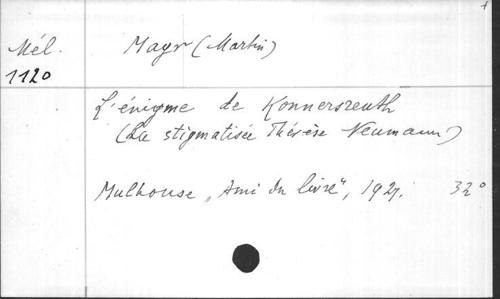 Mél. Mayr (Martin)
1120
L'énigme de Konnersreuth
(La stigmatisée Thérèse Neumann)
Mulhouse „Ami du livre", 1927. 32°